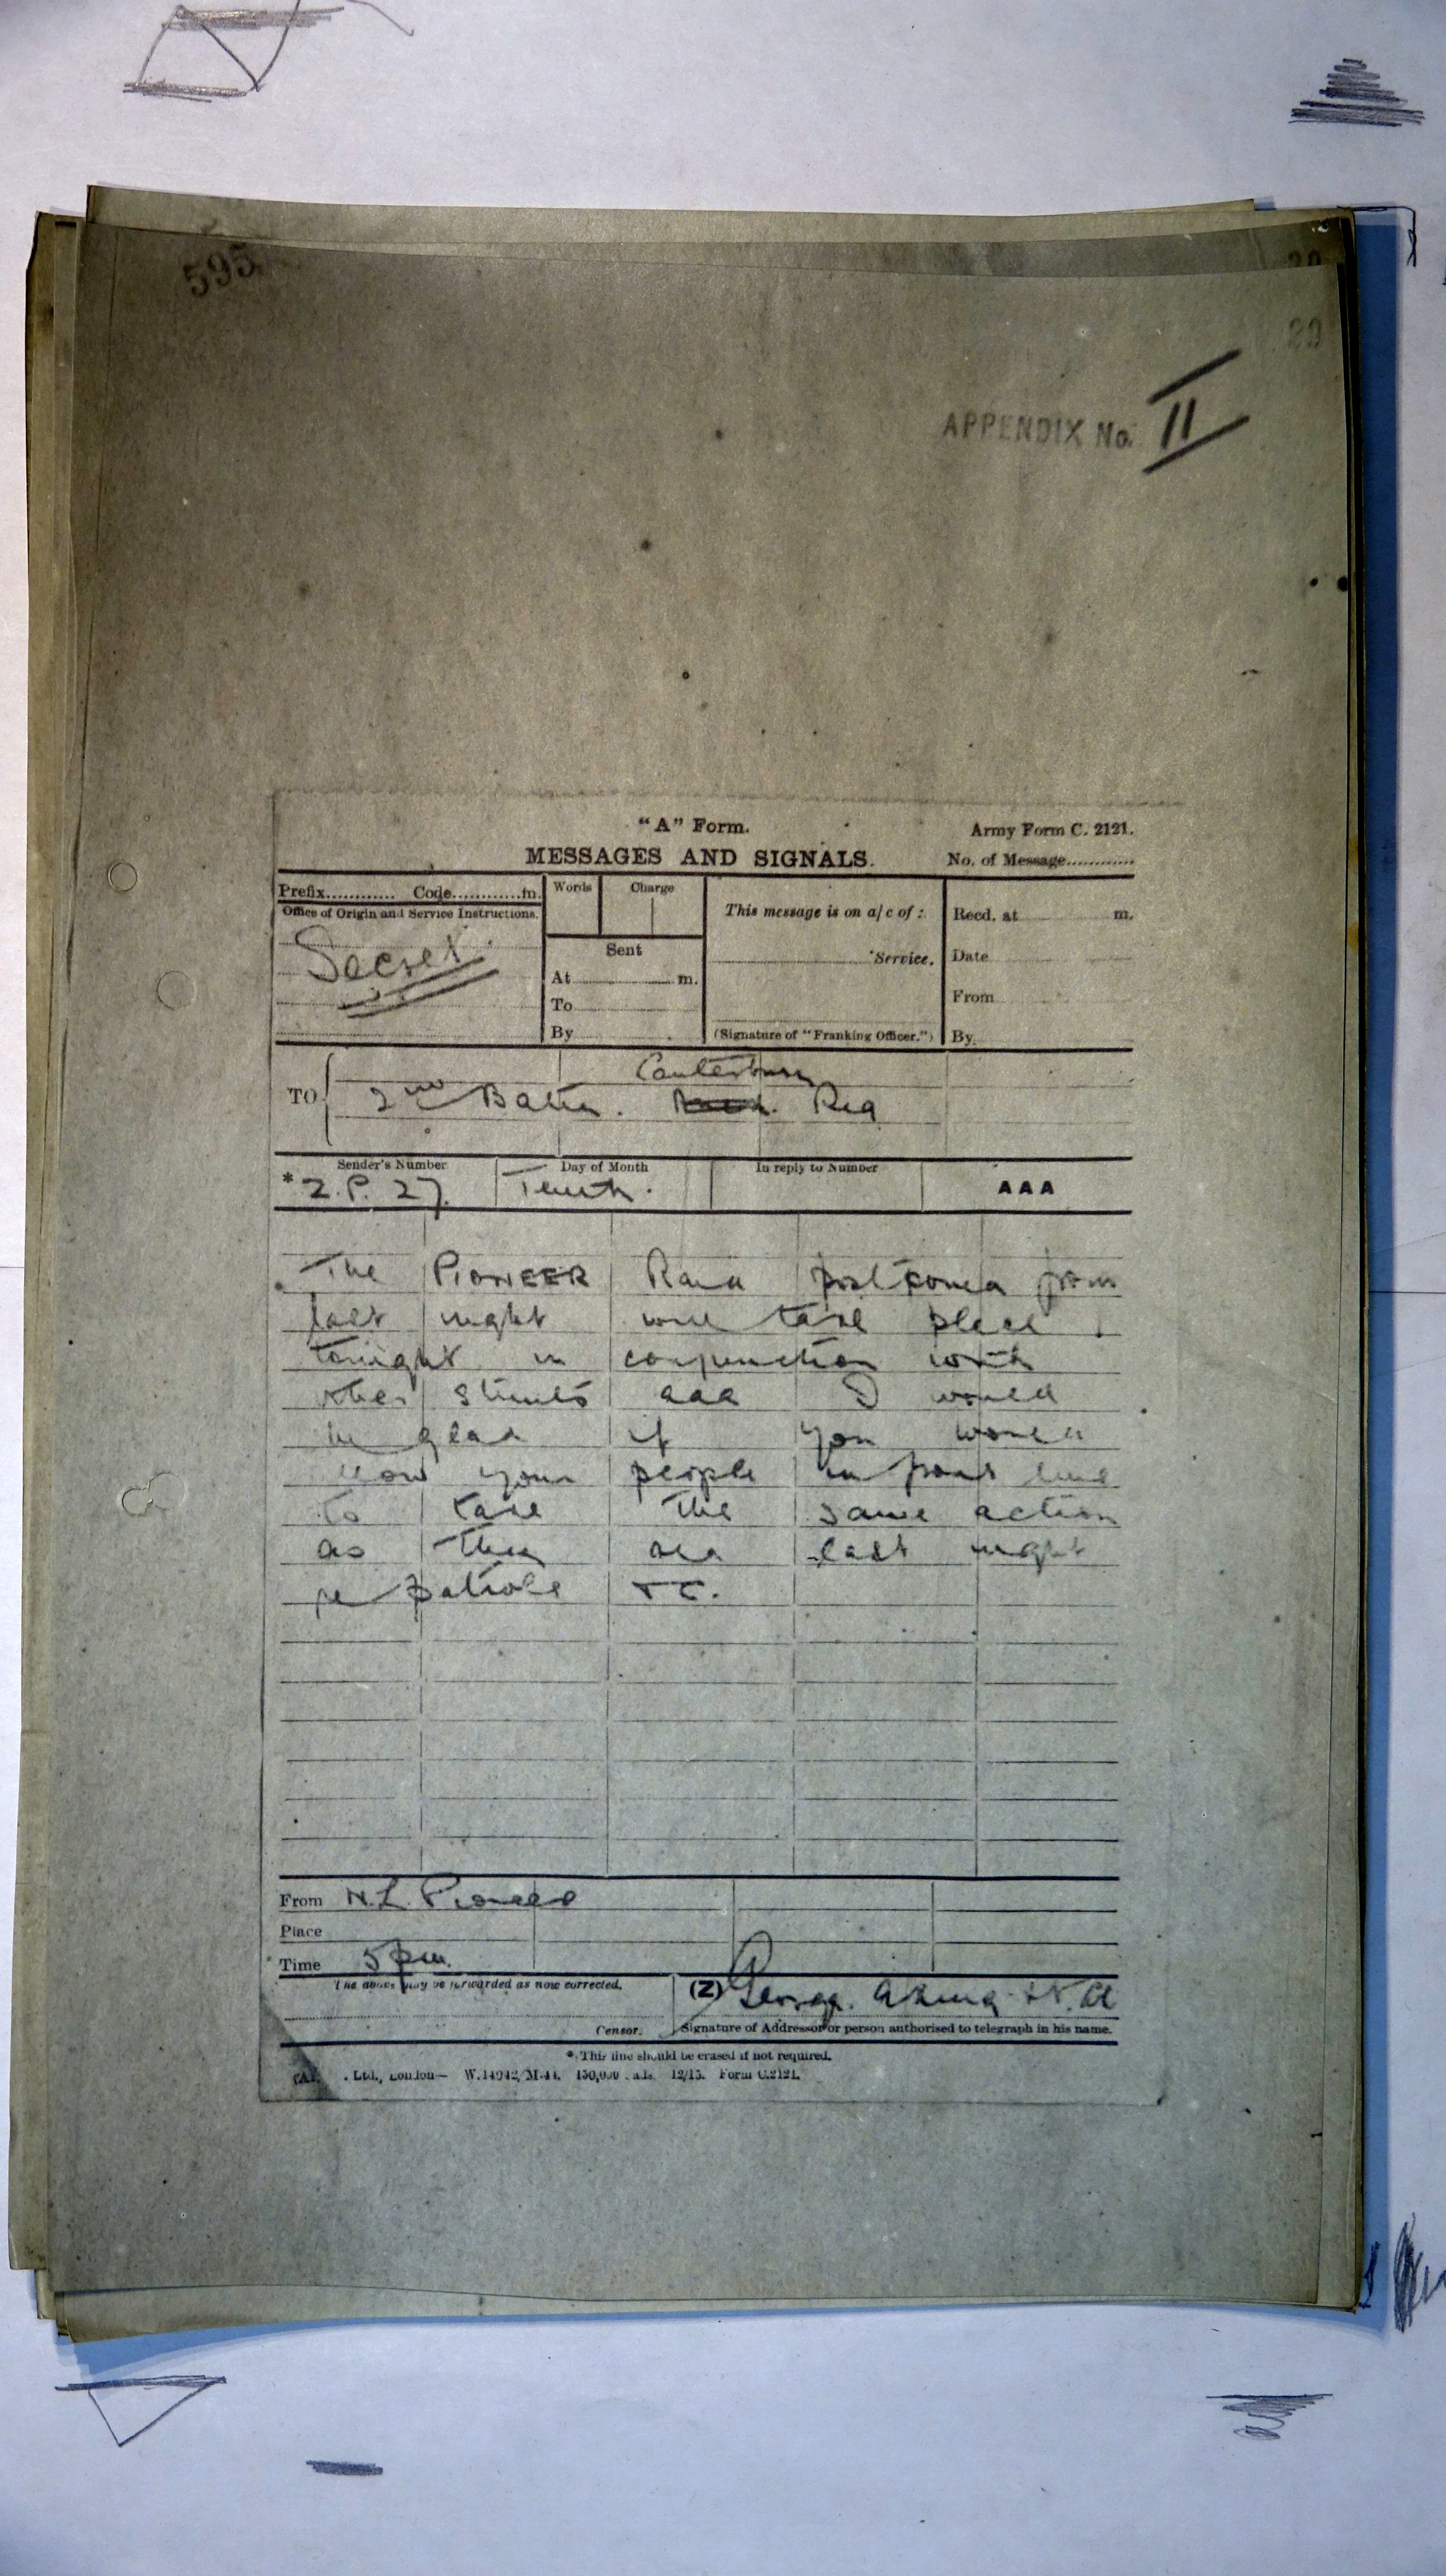 595
20
29
APPENDIX No. II
"A" Form.
Army Form C. 2121.
MESSAGES AND SIGNALS.
No. of Message............
Prefix............ Code............m.
Words
Charge
This message is on a/c of :
Recd. at m.
Office of Origin and Service Instructions.
Secret
Sent
Service.
Date
At m.
To
From
By
(Signature of "Franking Officer.")
By
Canterbury
TO 2nd Battn. Reg
Sender's Number
Day of Month
In reply to Number
AAA
* Z.P. 27.
Tenth.
The PIONEER Raid postponed from
last night will take place
tonight in conjunction with
other stunts aaa I would
be glad if you would
your people in front line
to take the same action
as they did last night
re patrols
From N.Z. Pioneer
Place
Time 5 pm.
The above may be forwarded as now corrected.
(Z) George
Censor.
Signature of Addressor or person authorised to telegraph in his name.
* This line should be erased if not required.
Ltd., London— W.14042/M.44. 12/15. Form C.2121.